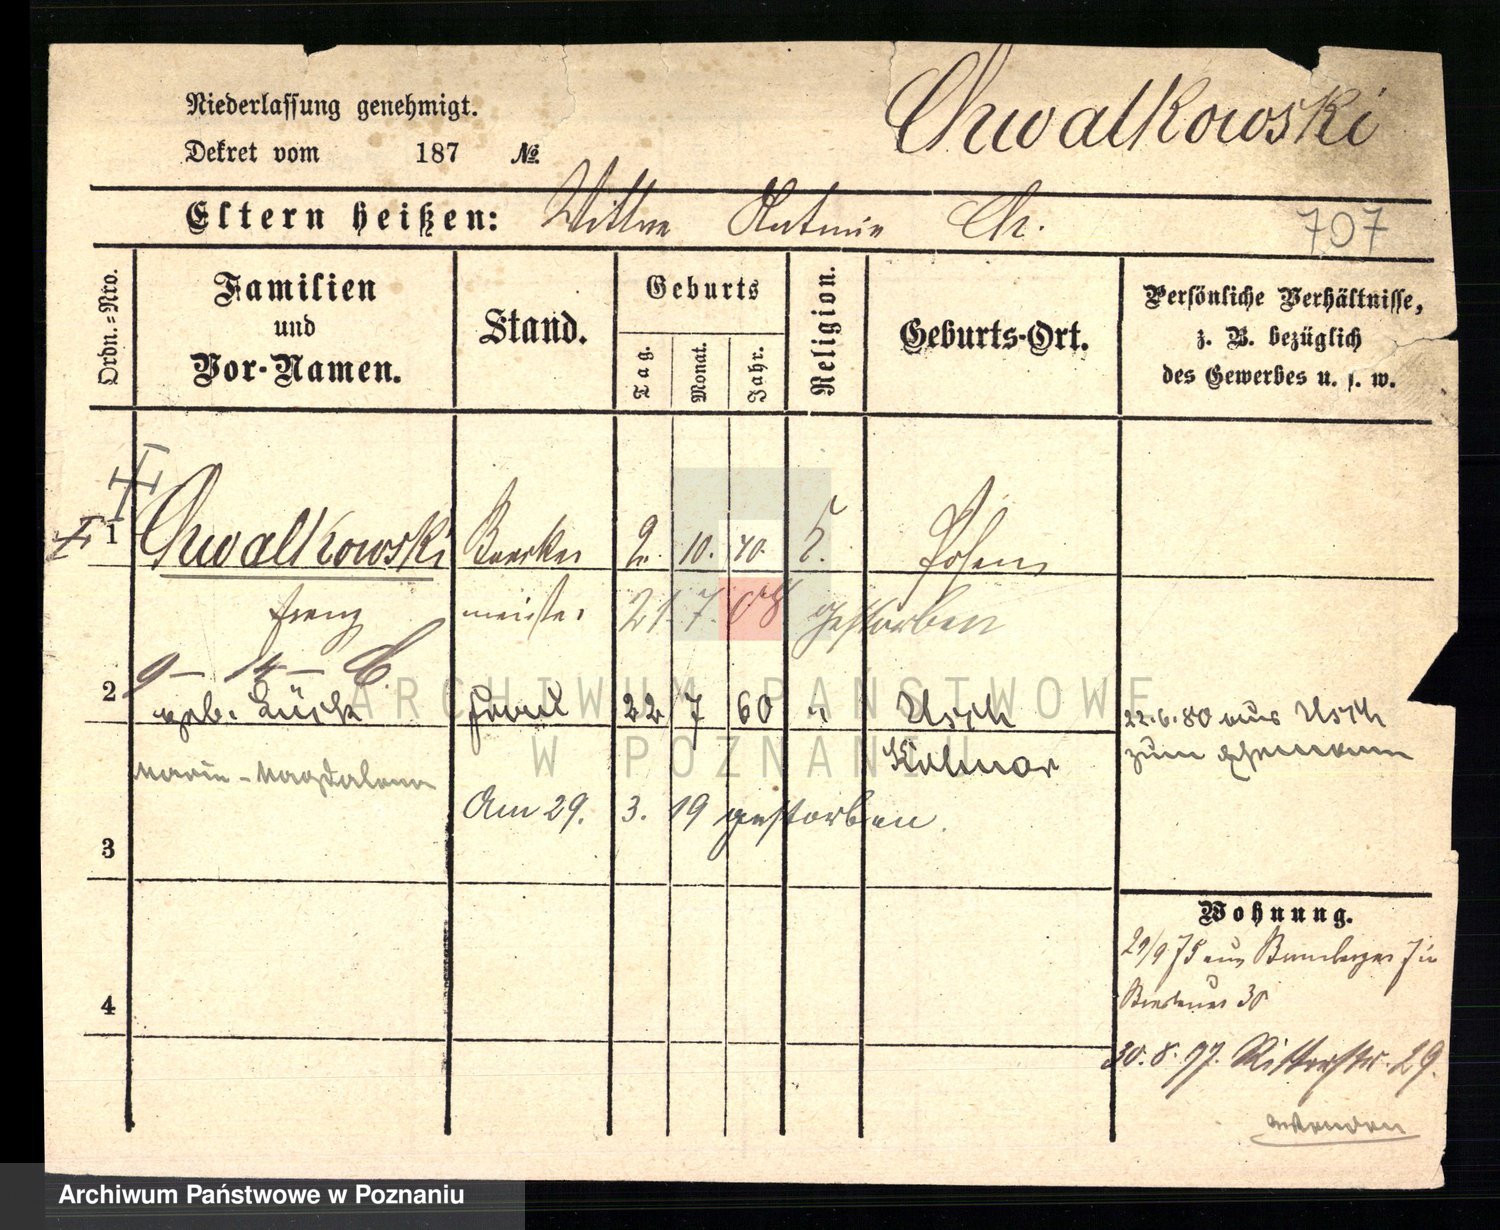 Niederlassung genehmigt.
Dekret vom 187 №.
Chwalkowski
Eltern heißen: Wittwe Antonie Ch.
707
Ordn.=Nro.
Familien
und
Vor-Namen.
Stand.
Geburts
Tag.
Monat.
Jahr.
Religion.
Geburts-Ort.
Persönliche Verhältnisse,
z. B. bezüglich
des Gewerbes u. s. w.
1 Chwalkowski 2. 10. 40. Posen
Franz meister 21. 7. 08 gestorben
9 – 14 – C.
2 geb. Lück Frau 22 7 60 " Usch 22.6.80 aus Usch
Kolmar zum
Marie-Magdalena
Am 29. 3. 19 gestorben.
3
Wohnung.
29/9 75 aus
4
30. 8. 97. Ritterstr. 29.
wenden
ARCHIWUM PAŃSTWOWE
W POZNANIU
Archiwum Państwowe w Poznaniu